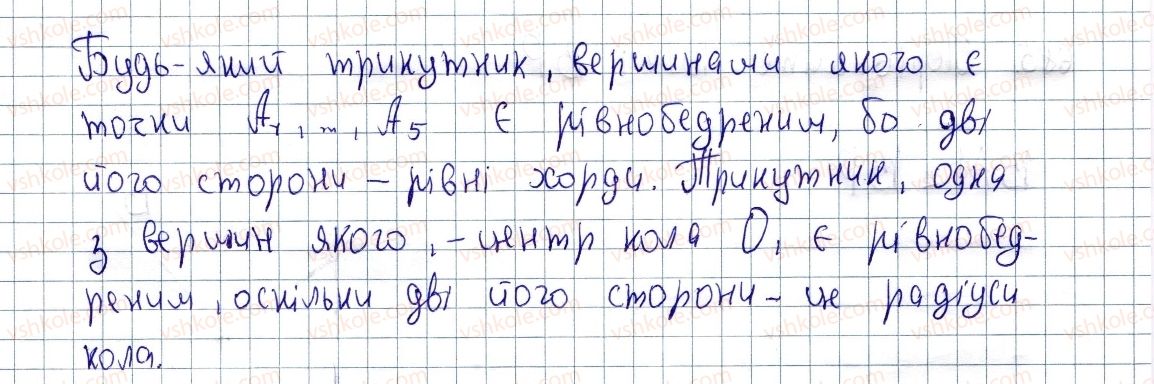 Будь-який трикутник, вершинами якого є
точки A₁, ..., A₅ є рівнобедреним, бо дві
його сторони – рівні хорди. Трикутник, одна
з вершин якого, – центр кола O, є рівнобед-
реним, оскільки дві його сторони – це радіуси
кола.